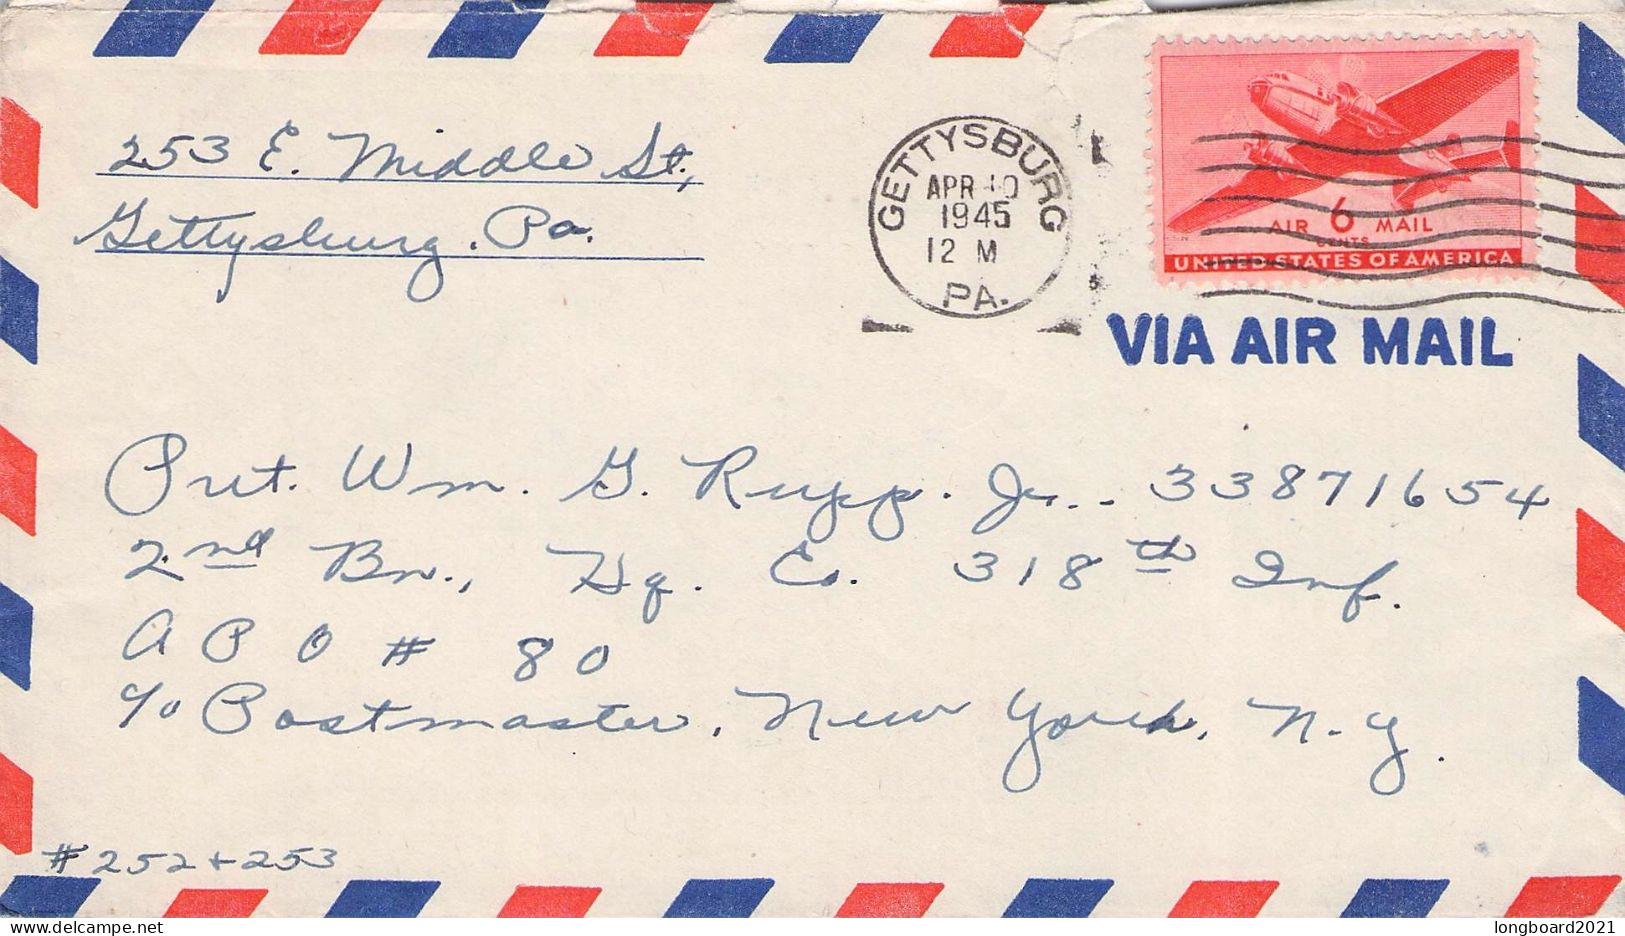 253 E. Middle St,
Gettysburg, Pa.
GETTYSBURG
APR 10
1945
12 M
PA.
AIR 6 MAIL
CENTS
UNITED STATES OF AMERICA
VIA AIR MAIL
Pvt. Wm. G. Rupp. Jr.. 33871654
2nd Bn., Hq. Co. 318th Inf.
A P O # 80
c/o Postmaster, New York, N.Y.
#252+253
www.delcampe.net
longboard2021